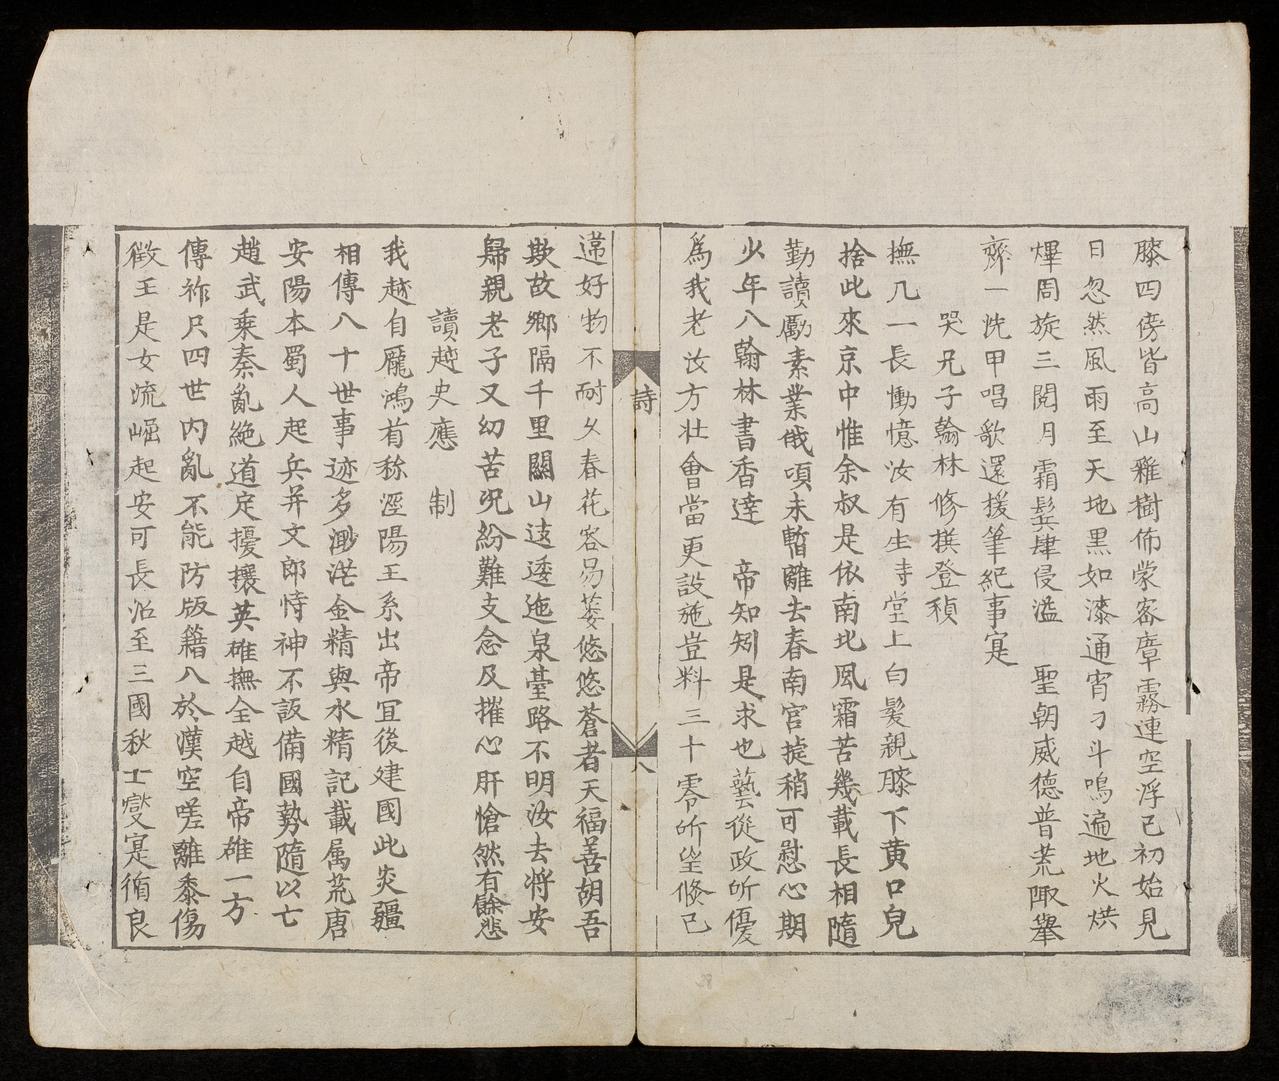 膝四傍皆高山雜樹佈蒙密瘴霧連空浮巳初始見
日忽然風雨至天地黑如漆通宵刁斗鳴遍地火烘
燀周旋三閱月霜鬂肆侵溢 聖朝威德普荒陬舉
齊一洗甲唱歌還援筆紀事寔
哭兄子翰林修撰登穎
撫几一長慟憶汝有生時堂上白髮親膝下黄口兒
捨此來京中惟余叔是依南北風霜苦幾載長相隨
勤讀勵素業俄頃未暫離去春南宮捷稍可慰心期
少年入翰林書香達 帝知矧是求也藝從政所優
為我老汝方壯會當更設施豈料三十零所望倏已
違好物不耐久春花容易萎悠悠蒼者天福善胡吾
欺故鄉隔千里關山迭逶迤泉臺路不明汝去将安
歸親老子又幼苦况紛難支念及摧心肝愴然有餘悲
讀越史應 制
我越自厖鴻首称涇陽王系出帝冝後建國此炎疆
相傳八十世事迹多渺茫金精與水精記載属荒唐
安陽本蜀人起兵并文郎恃神不設備國勢隨以亡
趙武乗秦亂絶道定擾攘英雄撫全越自帝雄一方
傳祚只四世内亂不能防版籍入於漢空嗟離黍傷
徵王是女流崛起安可長治至三國秋士燮寔循良
詩
八